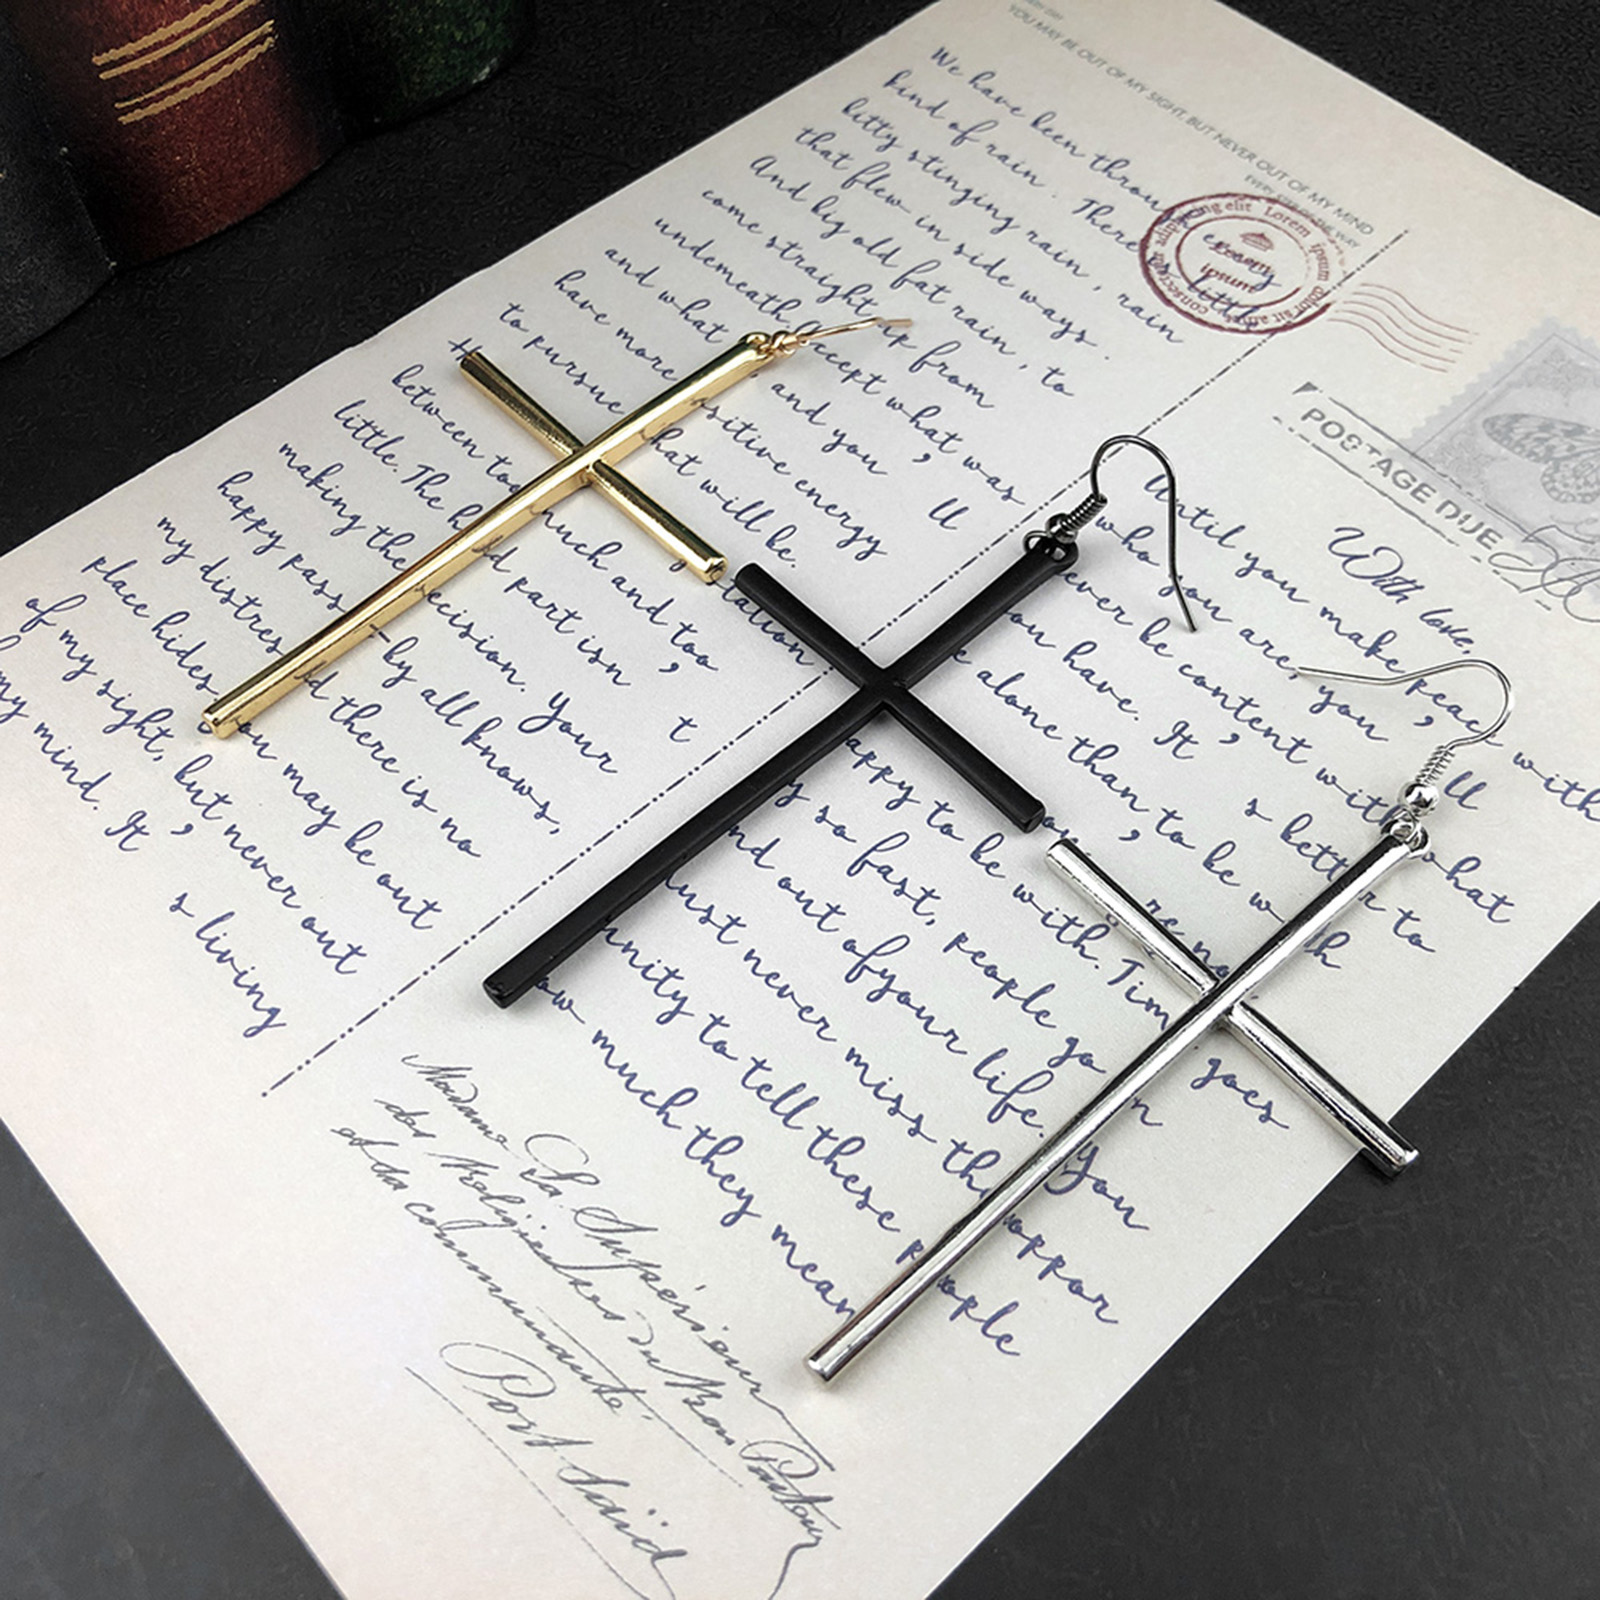 YOU MAY BE OUT OF MY SIGHT, BUT NEVER OUT OF MY MIND
EVERY STEP OF THE WAY
We have been throu every
kind of rain . There s little
bitty stinging rain , rain
that flew in side ways .
And big old fat rain , to
come straight up from
undemeath Accept what was
and what , and you ll
have more ositive energy
to pursue hat will be.
between too much and too
little. The h d part isn t
making the ecision. Your
happy pass -by all knows,
my distres d there is no
place hides you may be out
of my sight, but never out
my mind. It s living
adipiscing elit Lorem ipsum dolor sit consectetur
Lorem
ipsum
POSTAGE DUE
With love,
Until you make peace with
who you are, you ll
never be content with what
you have. It s better to
e alone than to be w h
appy to be with. Tim goes
y so fast, people go n
nd out ofyour life. You
ust never miss the oppor
nity to tell these people
ow much they mean
Madame La Supérieure
des Religieuses du Bon Pasteur
et sa communauté.
Port Saïd